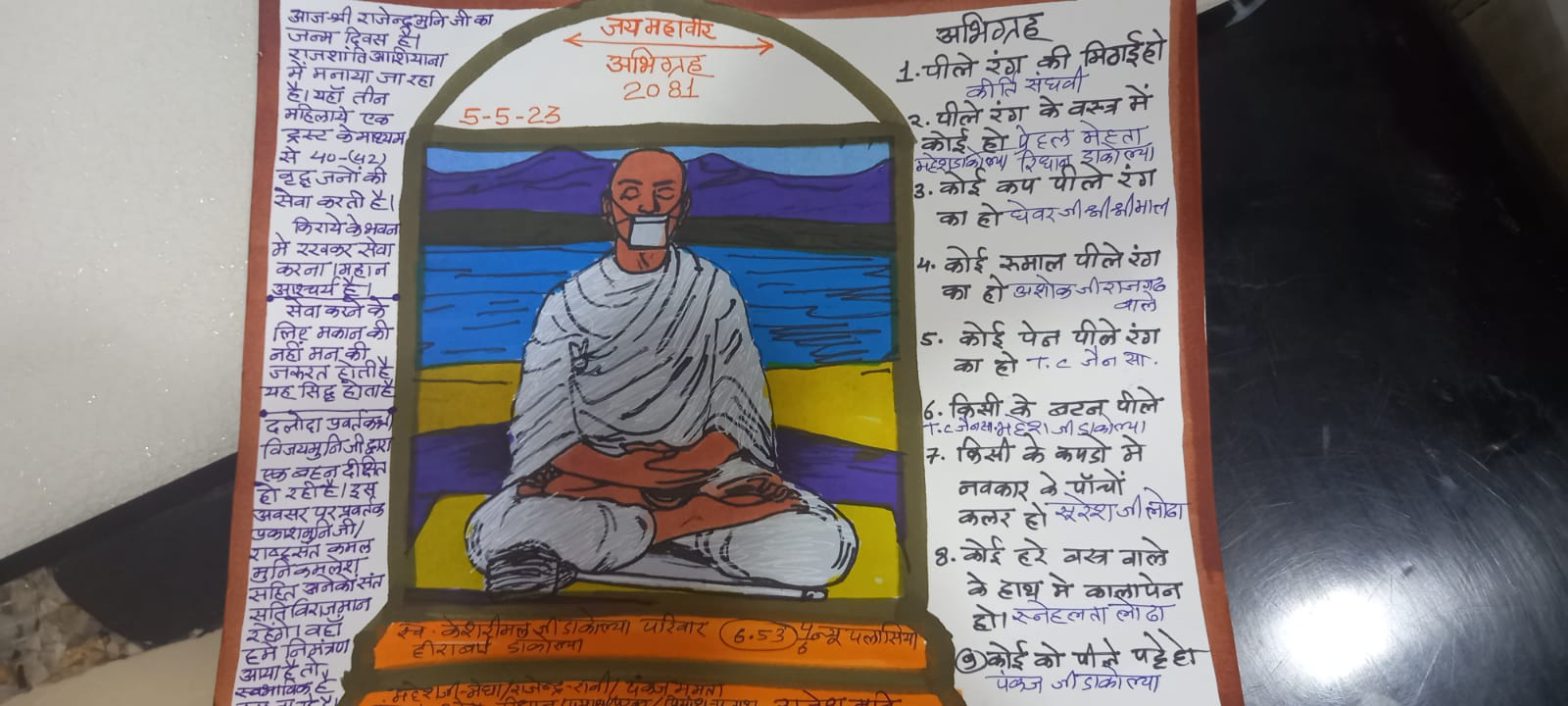 आज श्री राजेन्द्र मुनि जी का
जन्म दिवस है।
राजशांति आशियाना
में मनाया जा रहा
है। यहाँ तीन
महिलाये एक
ट्रस्ट के माध्यम
से 40-(42)
वृद्ध जनों की
सेवा करती है।
किराये के भवन
मे रखकर सेवा
करना। महान
आश्चर्य है।
सेवा करने के
लिए मकान की
नहीं मन की
जरूरत होती है
यह सिद्ध होता है
दलोदा प्रवर्तक श्री
विजयमुनि जी द्वारा
एक बहन दीक्षित
हो रही है। इस
अवसर पर प्रवर्तक
प्रकाशमुनि जी/
राष्ट्रसंत कमल
मुनि कमलेश
सहित अनेको संत
सति विराजमान
रहेगे। वहाँ
हमे निमंत्रण
आया है तो
स्वभाविक है
जय महावीर
अभिग्रह
2081
5-5-23
स्व. केशरीमल जी डाकोल्या परिवार 6.53 न्यू पलासिया
हीराबाई डाकोल्या
महेशजी-मेघा/राजेन्द्र-रानी/पंकज ममता
अभिग्रह
1. पीले रंग की मिठाई हो
कीर्ति संघवी
२. पीले रंग के वस्त्र में
कोई हो पेहल मेहता
महेश डाकोल्या रिधान डाकोल्या
3. कोई कप पीले रंग
का हो घेवर जी श्री श्रीमाल
4. कोई रुमाल पीले रंग
का हो अशोक जी राजगढ
वाले
5. कोई पेन पीले रंग
का हो T.C जैन सा.
6. किसी के बटन पीले
T.C जैन सा. महेश जी डाकोल्या
7. किसी के कपडो मे
नवकार के पाँचों
कलर हो सुरेश जी लोढा
8. कोई हरे वस्त्र वाले
के हाथ मे काला पेन
हो। स्नेहलता लोढा
9 कोई को पीले पट्टे हो
पंकज जी डाकोल्या